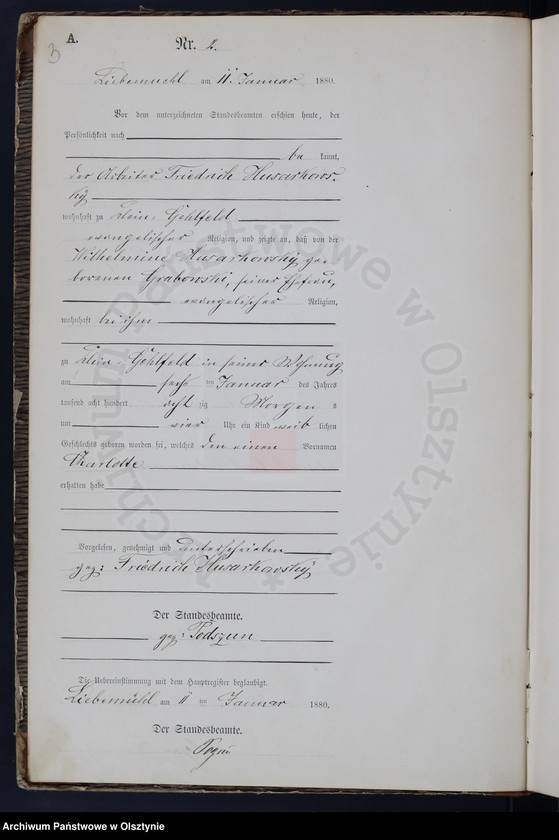 A.
3
Nr. 2.
Liebemuehl am 11. Januar 1880.
Vor dem unterzeichneten Standesbeamten erschien heute, der
Persönlichkeit nach
be kannt,
der Arbeiter Friedrich Husarkows-
ky
wohnhaft zu Klein-Gehlfeld
evangelischer Religion, und zeigte an, daß von der
Wilhelmine Husarkowsky, ge-
borenen Grabowski, seiner Ehefrau,
evangelischer Religion,
wohnhaft bei ihm
zu Klein-Gehlfeld in seiner Wohnung
am sechs ten Januar des Jahres
tausend acht hundert acht zig Morgen s
um vier Uhr ein Kind weib lichen
Geschlechts geboren worden sei, welches den einen Vornamen
Charlotte
erhalten habe
Vorgelesen, genehmigt und unterschrieben
gez: Friedrich Husarkowsky
Der Standesbeamte.
gez: Podszun
Die Uebereinstimmung mit dem Hauptregister beglaubigt.
Liebemühl am 11 ten Januar 1880.
Der Standesbeamte.
Archiwum Państwowe w Olsztynie
Archiwum Państwowe w Olsztynie *